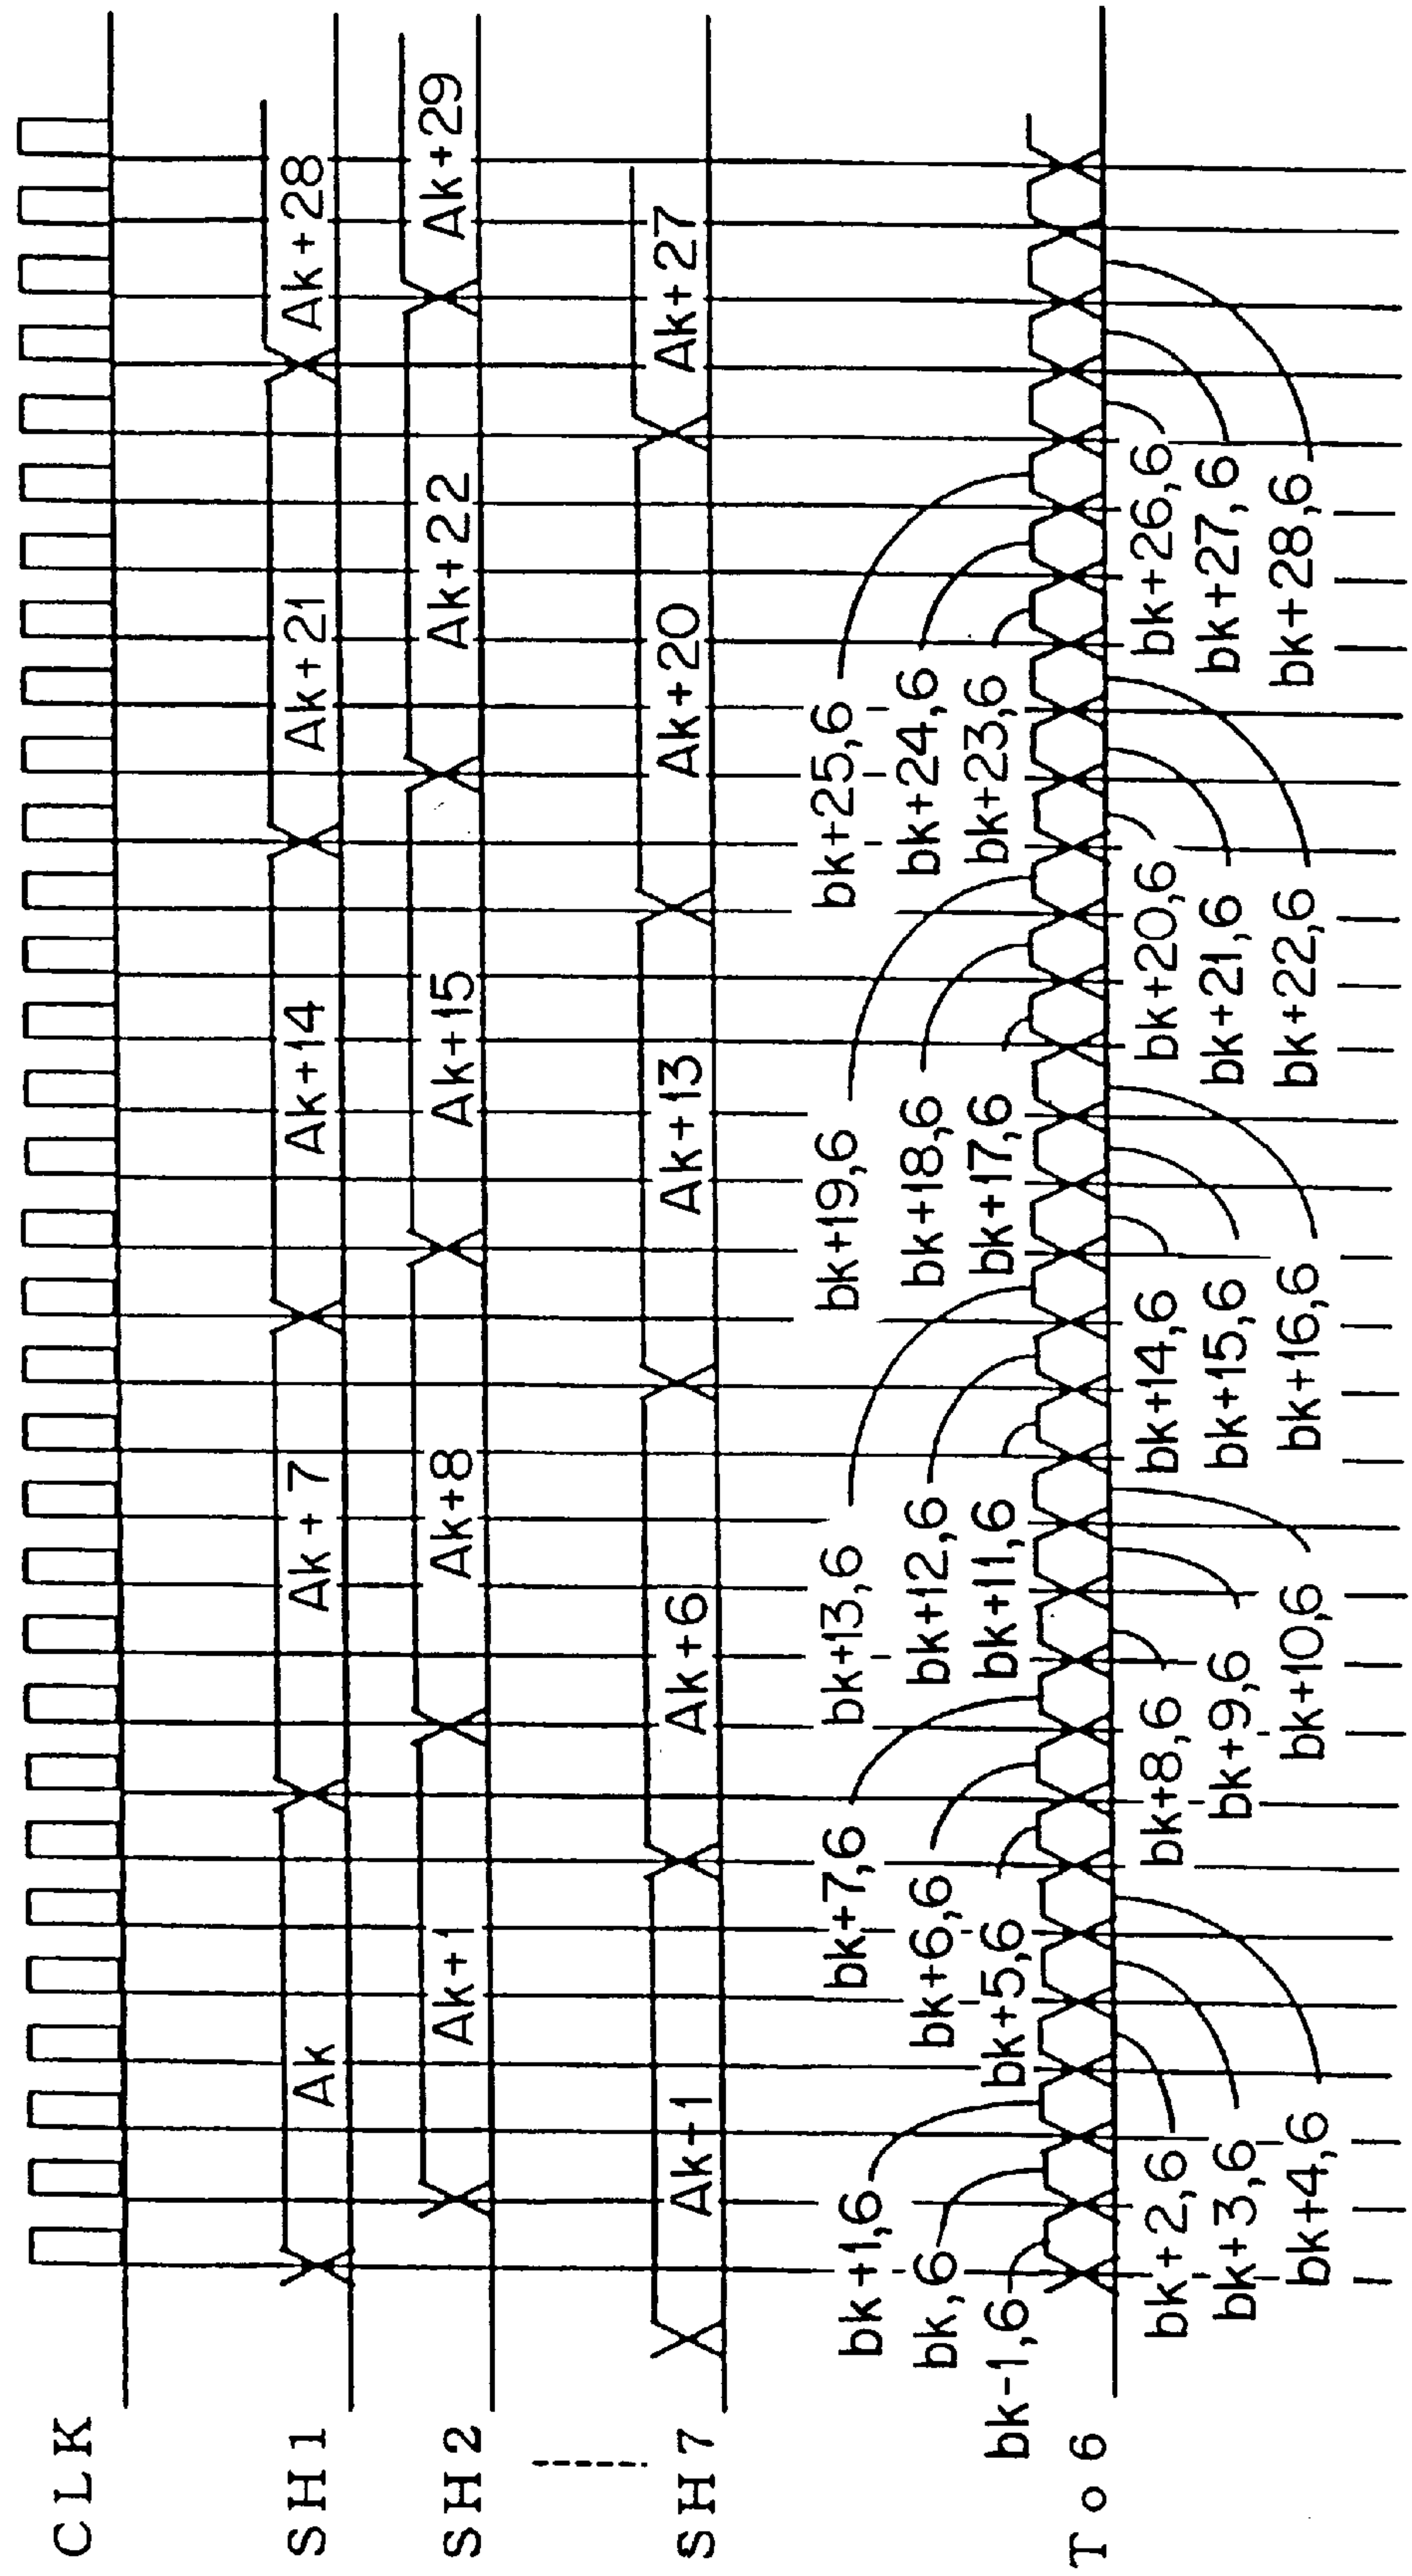 CLK
SH1
Ak
Ak+7
Ak+14
Ak+21
Ak+28
SH2
Ak+1
Ak+8
Ak+15
Ak+22
Ak+29
SH7
Ak+1
Ak+6
Ak+13
Ak+20
Ak+27
bk+1,6
bk+7,6
bk+13,6
bk+19,6
bk+25,6
bk,6
bk+6,6
bk+12,6
bk+18,6
bk+24,6
bk-1,6
bk+5,6
bk+11,6
bk+17,6
bk+23,6
To6
bk+2,6
bk+8,6
bk+14,6
bk+20,6
bk+26,6
bk+3,6
bk+9,6
bk+15,6
bk+21,6
bk+27,6
bk+4,6
bk+10,6
bk+16,6
bk+22,6
bk+28,6